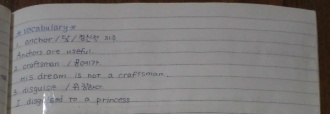 * vocabulary *
1. anchor / 닻 /
Anchors are useful.
2. craftsman / 공예가
His dream is not a craftsman.
3. disguise /
I disguised to a princess